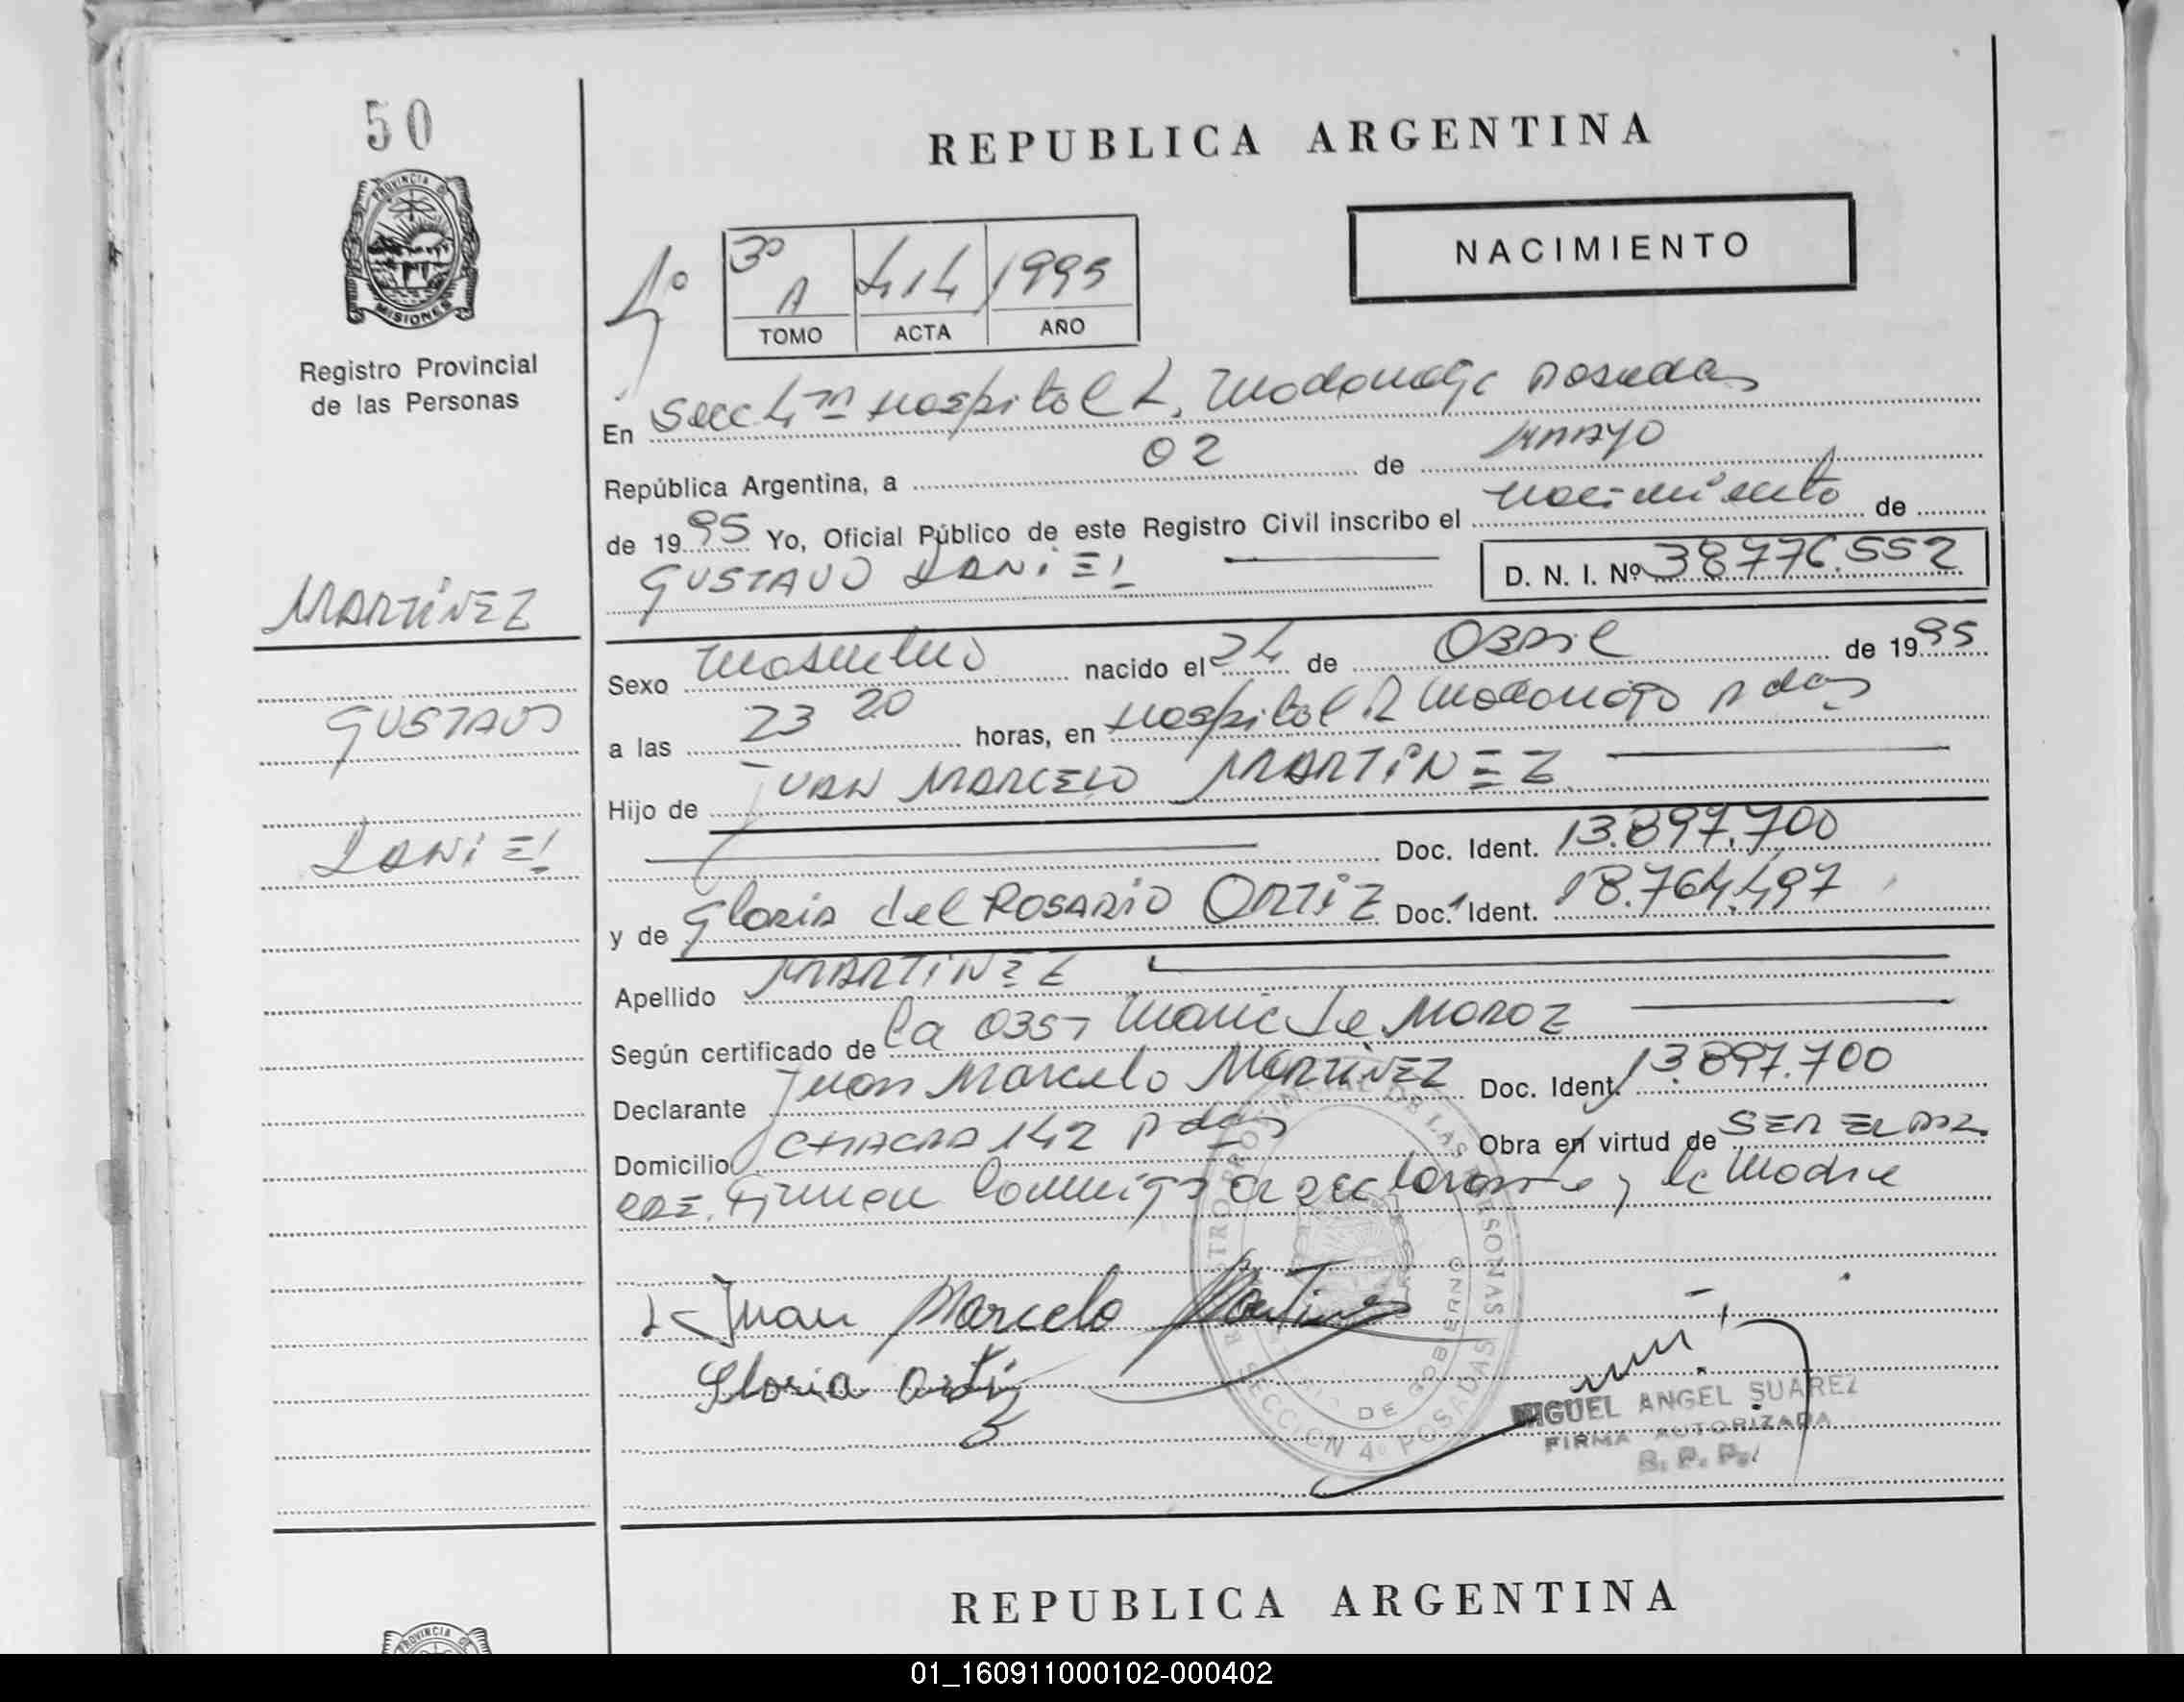 50
PROVINCIA DE
MISIONES
Registro Provincial
de las Personas
MARTÍNEZ
GUSTAVO
DANIEL
REPUBLICA ARGENTINA
NACIMIENTO
4º
3º A 414 1995
TOMO ACTA AÑO
En Secc 4ta Hospital R. Madariaga Posadas
República Argentina, a 02 de MAYO
de 1995 Yo, Oficial Público de este Registro Civil inscribo el nacimiento de
GUSTAVO DANIEL D. N. I. Nº 38776.552
Sexo masculino nacido el 24 de ABRIL de 1995
a las 23 20 horas, en Hospital R Madariaga Pdas
Hijo de JUAN MARCELO MARTÍNEZ
Doc. Ident. 13.897.700
y de Gloria del ROSARIO ORTIZ Doc. Ident. 18.764.497
Apellido MARTINEZ
Según certificado de la OBST MOROZ
Declarante Juan Marcelo MARTÍNEZ Doc. Ident. 13.897.700
Domicilio CHACRA 142 Pdas Obra en virtud de SER EL PA
DRE. Firman conmigo declarante y la Madre
Juan Marcelo Martinez
Gloria Ortiz
REGISTRO PROVINCIAL DE LAS PERSONAS
DE GOBIERNO
SECCION 4º POSADAS
MIGUEL ANGEL SUAREZ
FIRMA AUTORIZADA
R. P. P.
REPUBLICA ARGENTINA
PROVINCIA DE
01_160911000102-000402